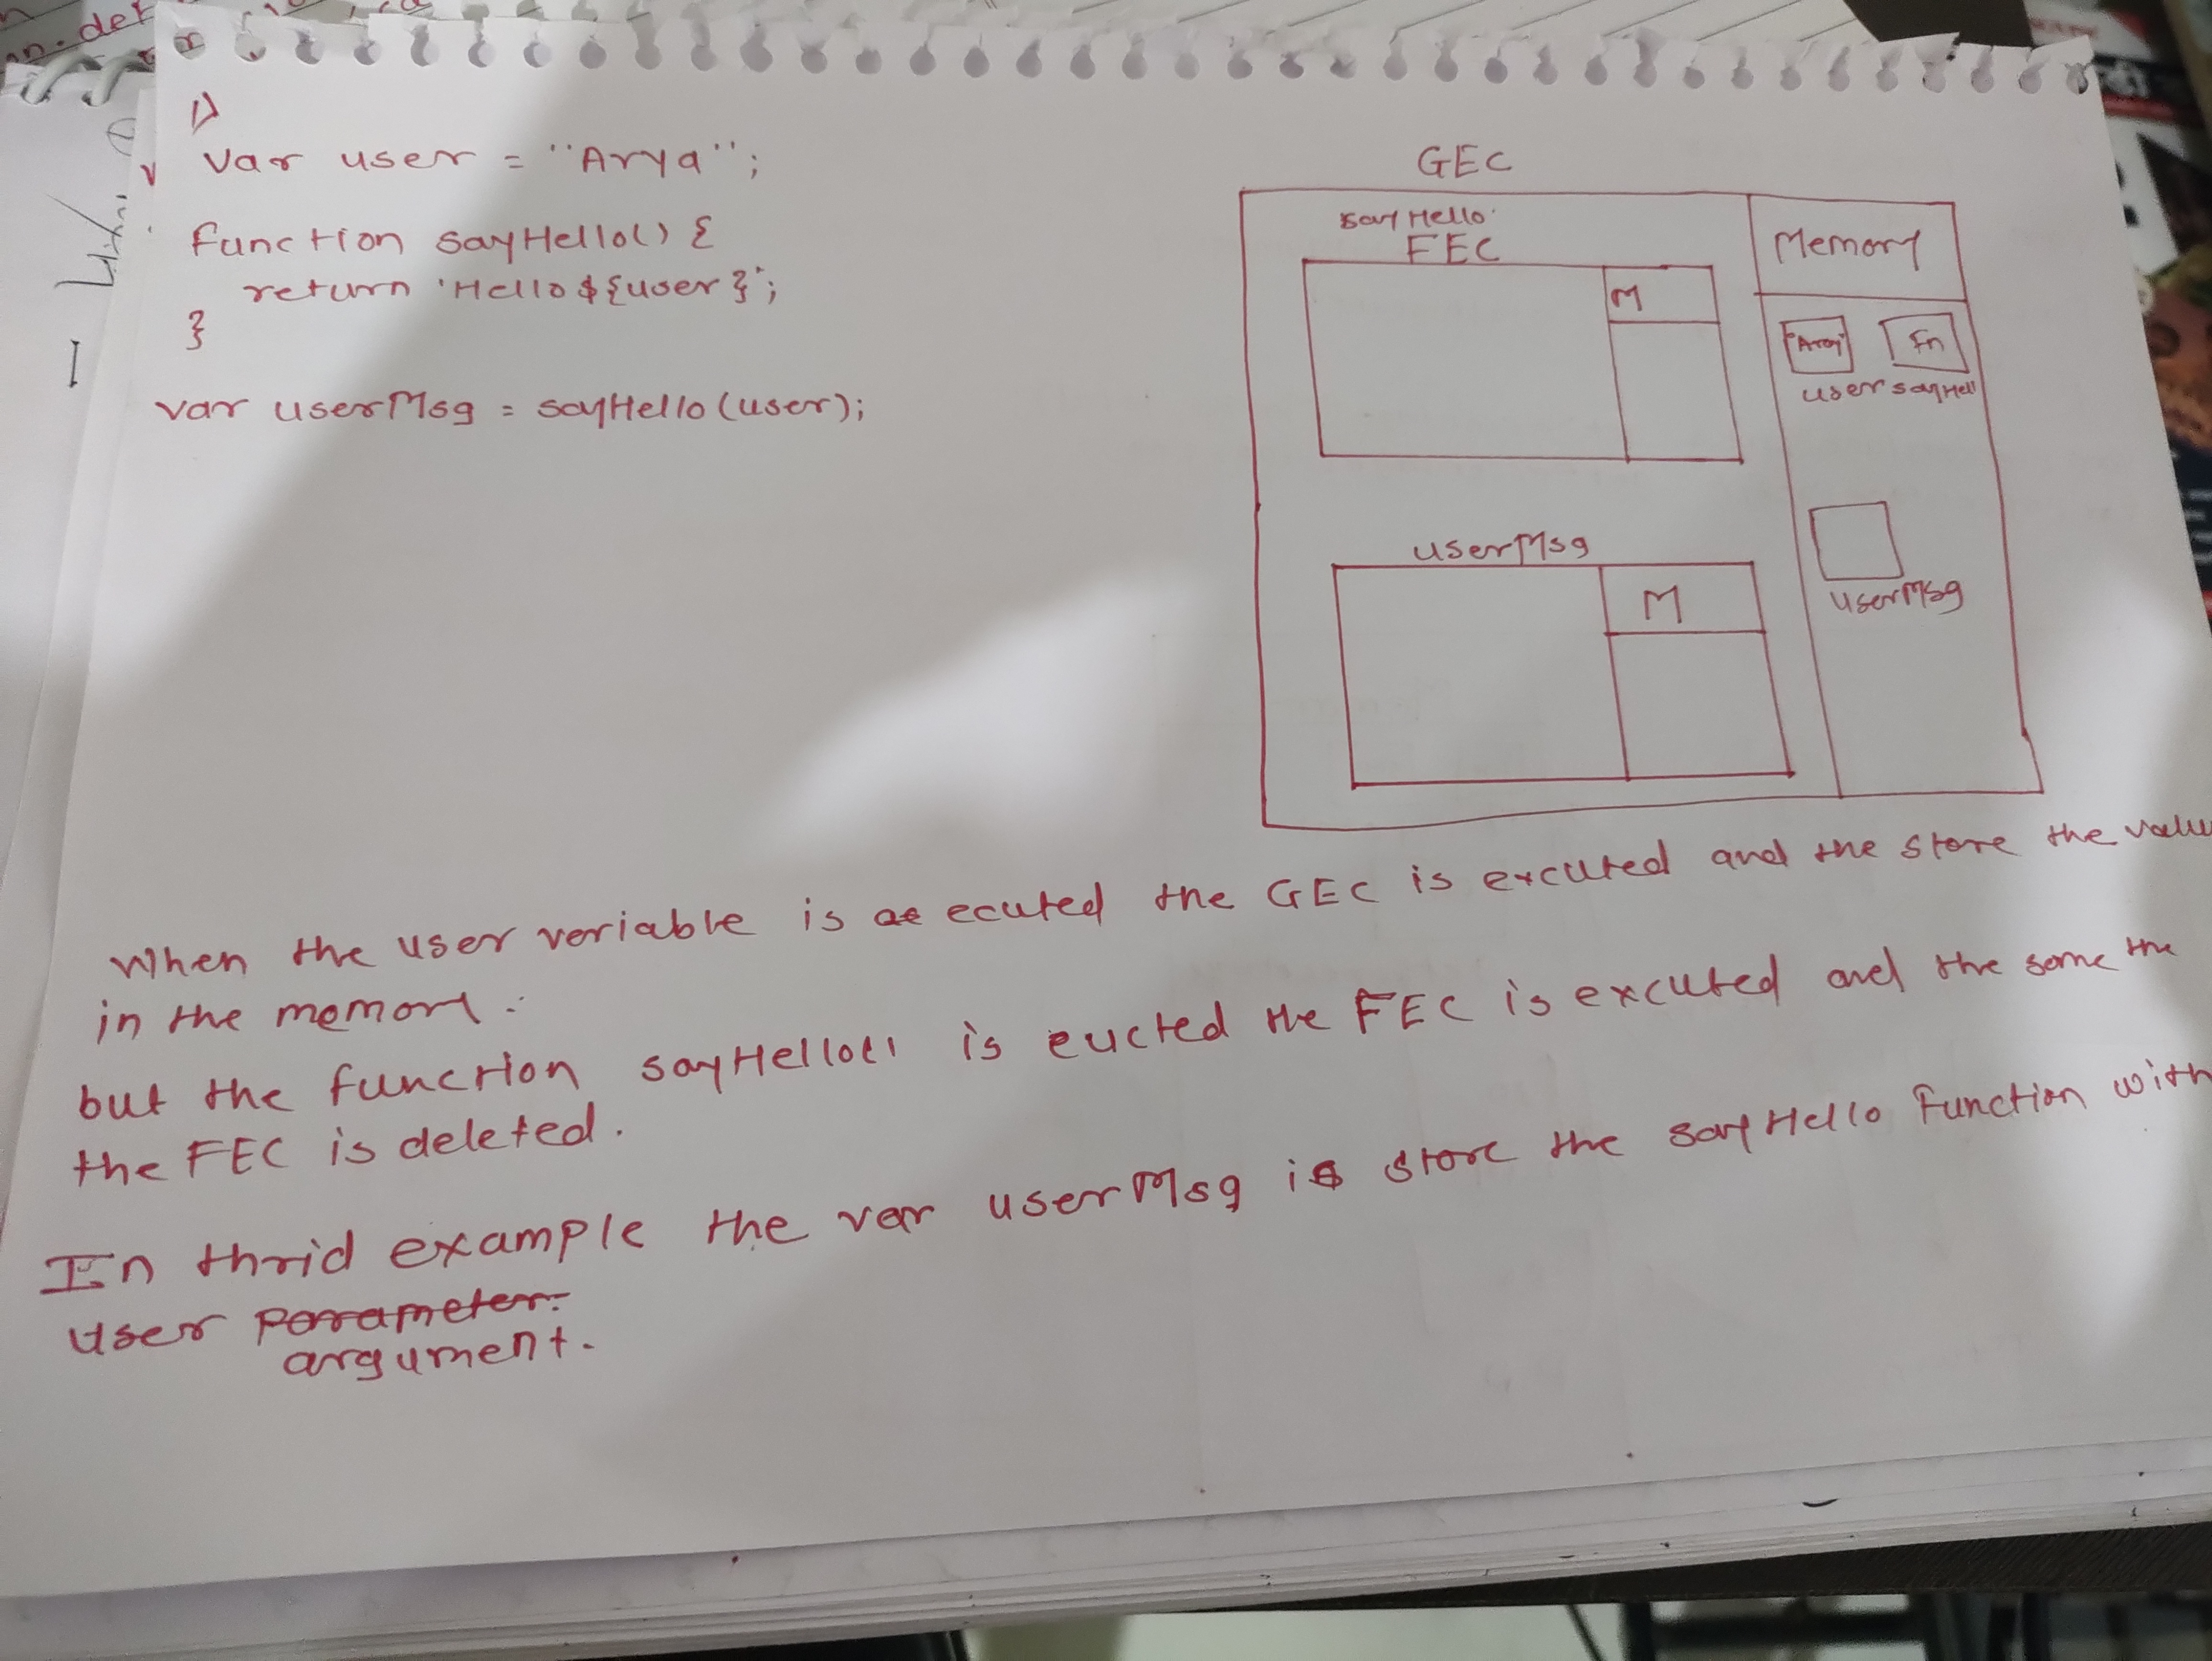 1)
var user = "Arya";
function sayHello() {
return 'Hello ${user}';
}
var userMsg = sayHello(user);
GEC
sayHello
FEC
M
Memory
Fn
user sayHell
userMsg
M
userMsg
When the user veriable is ecuted the GEC is excuted and the store the value
in the memory.
but the function sayHello() is eucted the FEC is excuted and the some the
the FEC is deleted.
In thrid example the var userMsg is store the sayHello Function with
user parameter.
argument.